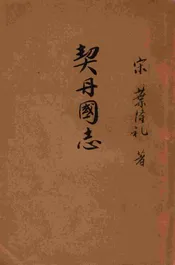 宋 葉隆礼 著
契丹國志